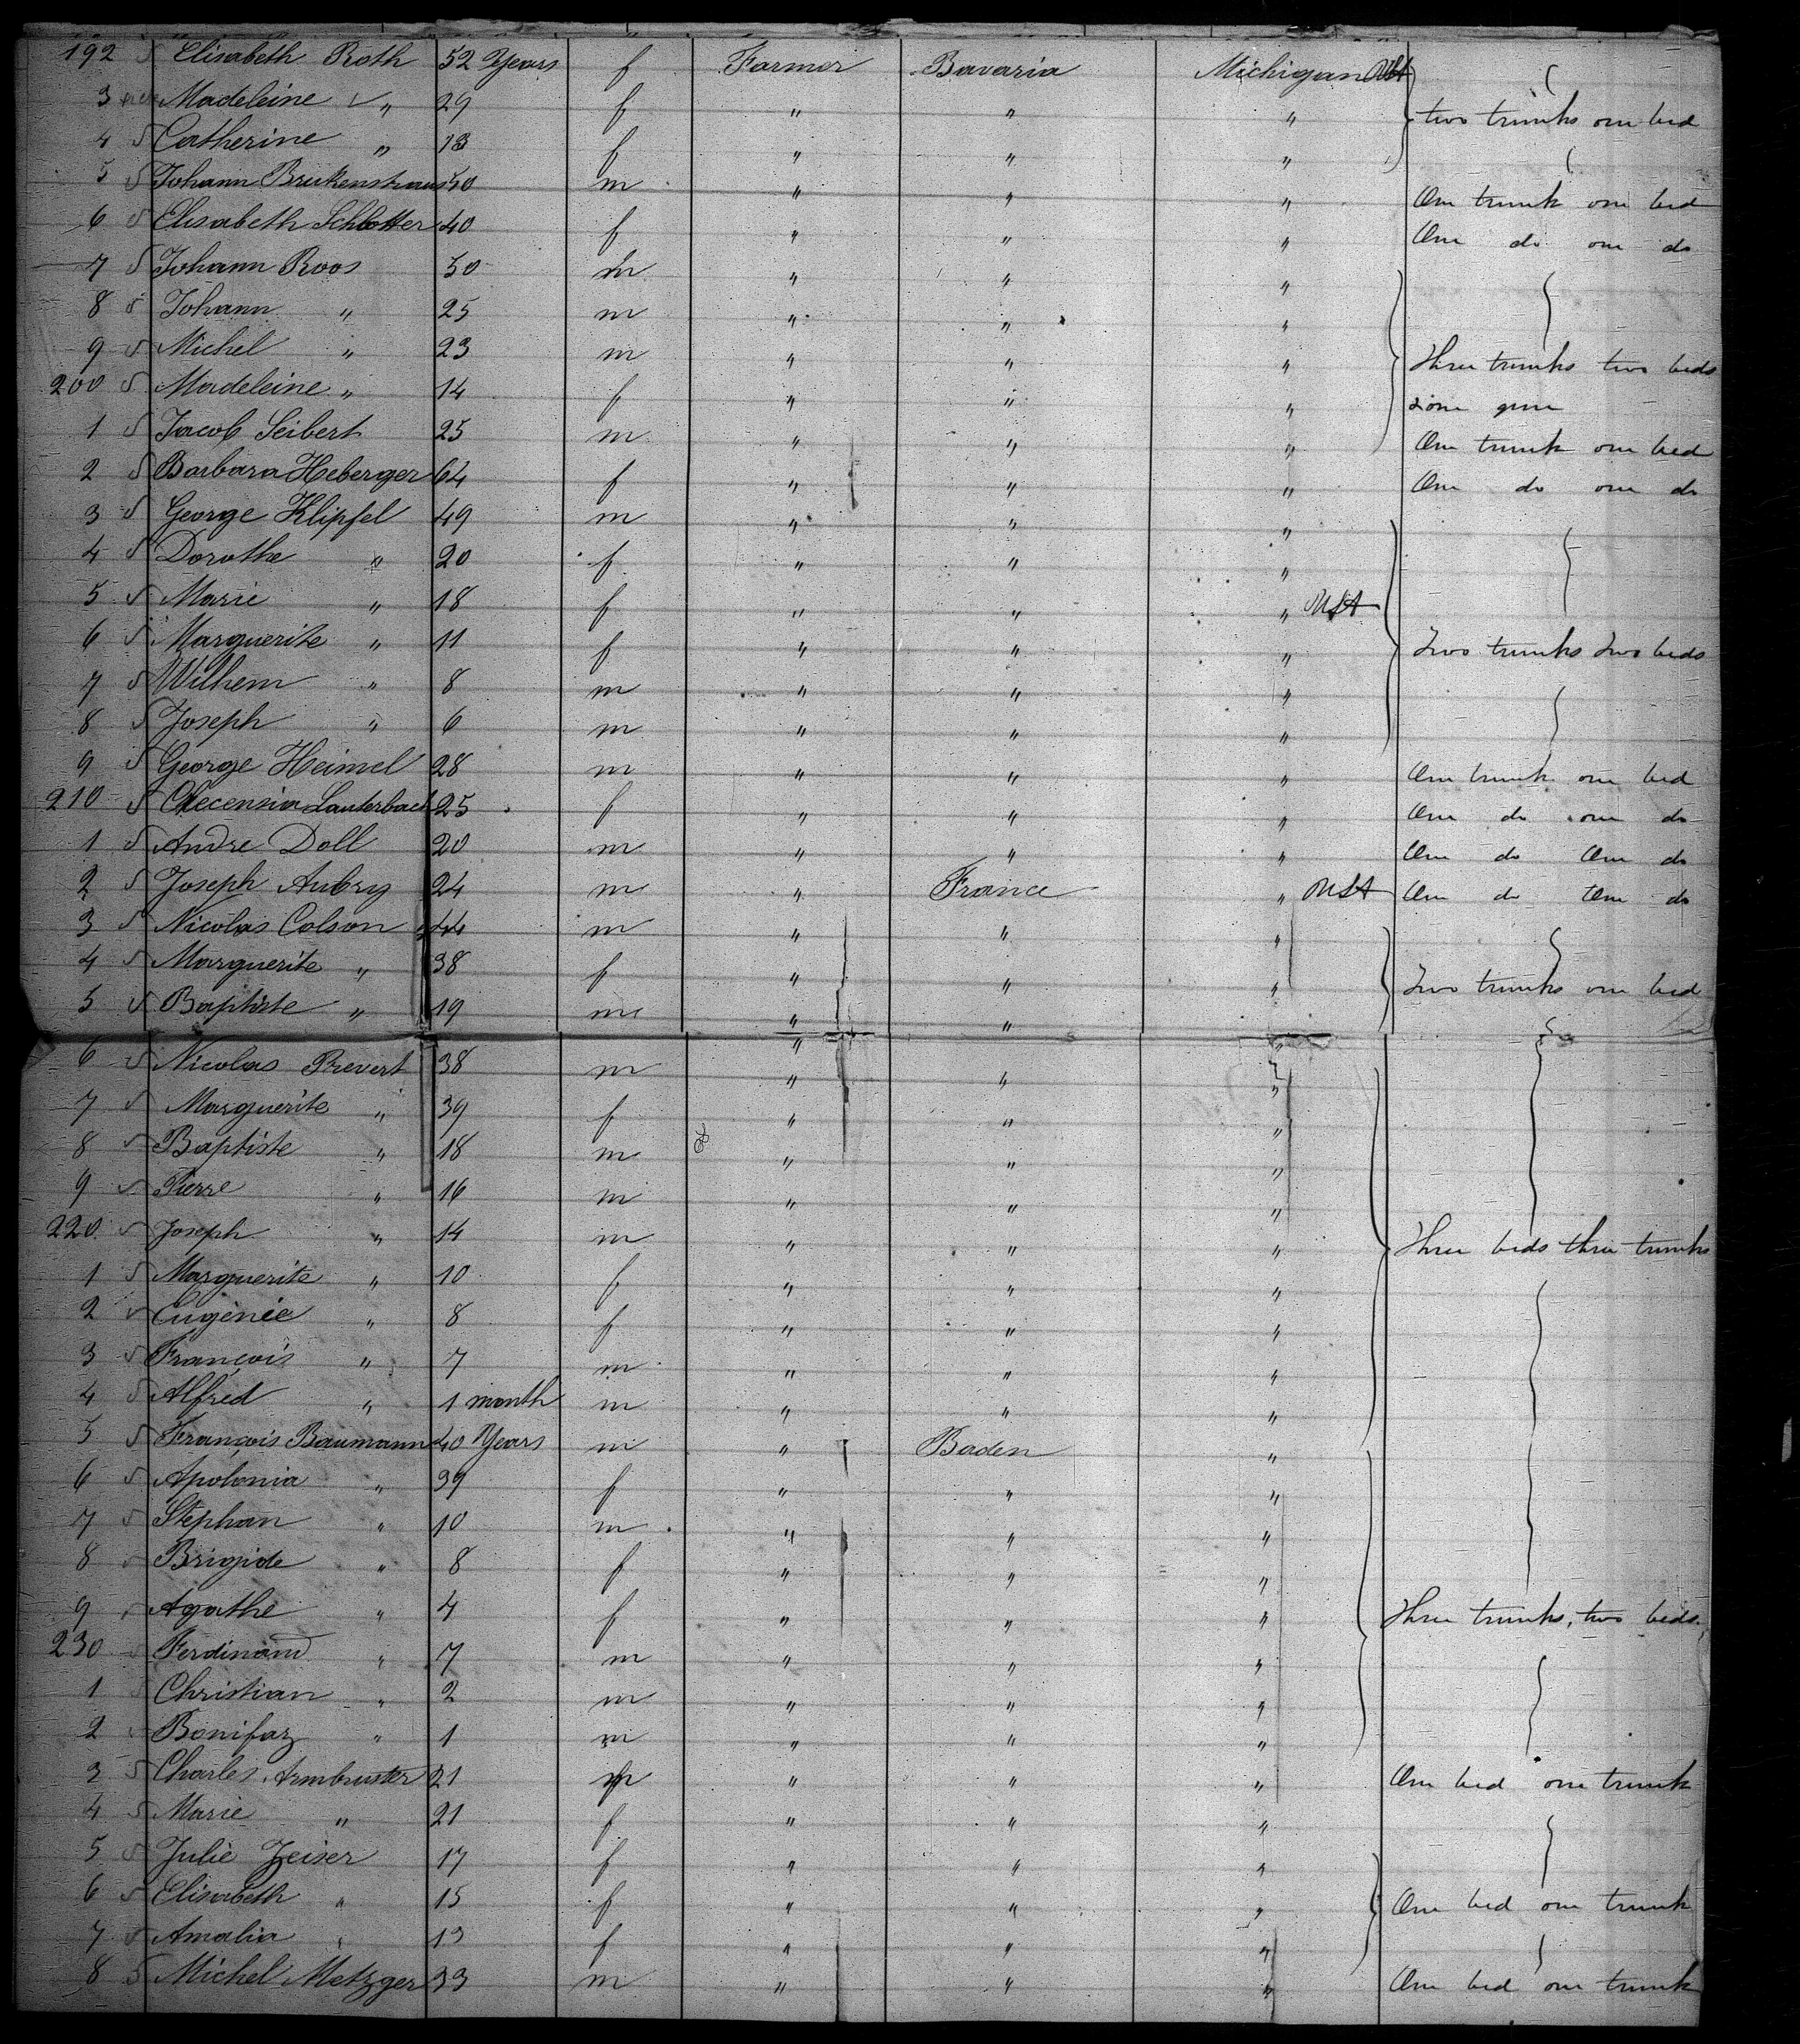 192 Elisabeth Roth 52 Years f Farmer Bavaria Michigan USA
3 Madeleine " 29 f " " " two trunks one bed
4 Catherine " 13 f " " "
5 Johann Bruckenstraus 50 m " " " One trunk one bed
6 Elisabeth Schlotter 40 f " " " One do one do
7 Johann Roos 50 m " " "
8 Johann " 25 m " " "
9 Michel " 23 m " " " three trunks two beds
200 Madeleine " 14 f " " "
1 Jacob Seibert 25 m " " " One trunk one bed
2 Barbara Heberger 64 f " " " One do one do
3 George Klipfel 49 m " " "
4 Dorothe " 20 f " " "
5 Marie " 18 f " " " USA
6 Marguerite " 11 f " " " Two trunks two beds
7 Wilhem " 8 m " " "
8 Joseph " 6 m " " "
9 George Heimel 28 m " " " One trunk one bed
210 Lauterbach 25 f " " " One do one do
1 Andre Doll 20 m " " " One do One do
2 Joseph Aubry 24 m " France " USA One do One do
3 Nicolas Colson 44 m " " "
4 Marguerite " 38 f " " " Two trunks one bed
5 Baptiste " 19 m " " "
6 Nicolas Prevert 38 m " " "
7 Marguerite " 39 f " " "
8 Baptiste " 18 m " " "
9 Pierre " 16 m " " "
220 Joseph " 14 m " " " Three beds three trunks
1 Marguerite " 10 f " " "
2 Eugènie " 8 f " " "
3 François " 7 m " " "
4 Alfred " 1 month m " " "
5 François Baumann 40 Years m " Baden "
6 Apolonia " 39 f " " "
7 Stephan " 10 m " " "
8 Brigide " 8 f " " "
9 Agathe " 4 f " " " Three trunks, two beds.
230 Ferdinand " 7 m " " "
1 Christian " 2 m " " "
2 Bonifaz " 1 m " " "
3 Charles Armbruster 21 m " " " One bed one trunk
4 Marie " 21 f " " "
5 Julie Zeiser 17 f " " "
6 Elisabeth " 15 f " " " One bed one trunk
7 Amalia " 13 f " " "
8 Michel Metzger 33 m " " " One bed one trunk